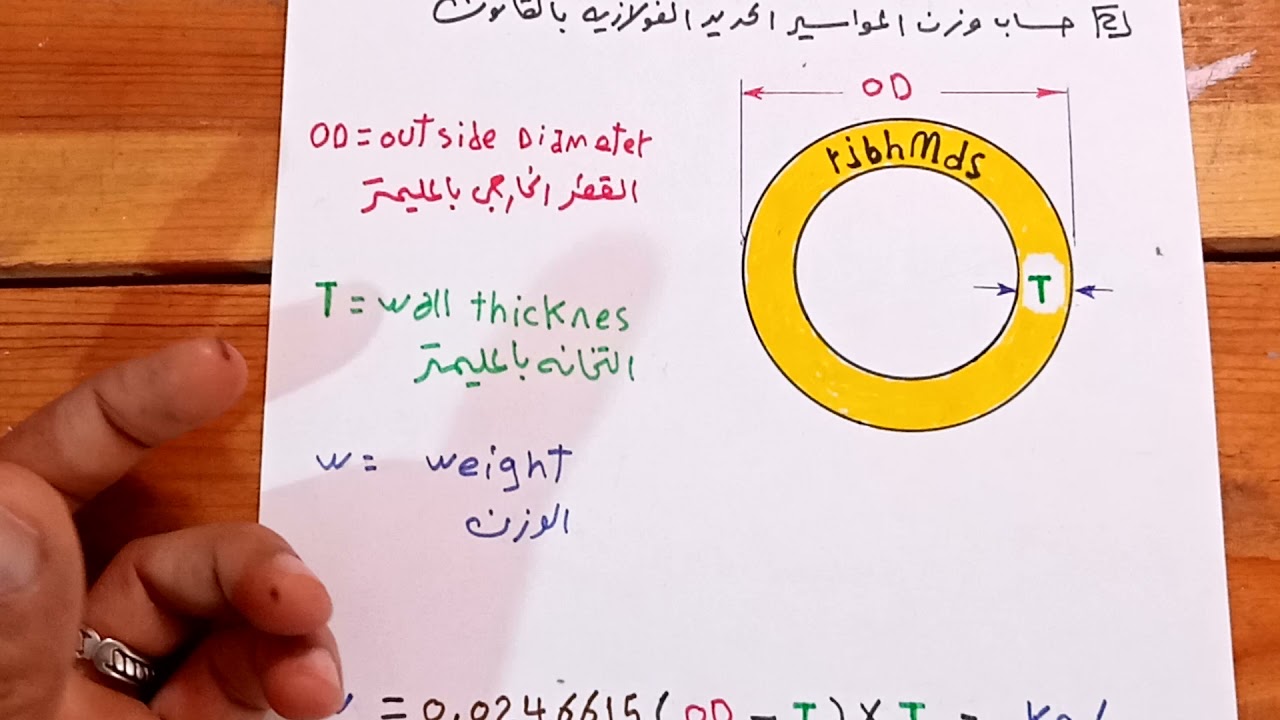 [2] حساب وزن المواسير الحديد الفولاذيه بالقانون
OD
OD = outside Diameter
القطر الخارجي بالمليمتر
rjbhMds
T = wall thicknes
التخانه بالمليمتر
T
w = weight
الوزن
= 0.0246615 ( OD - T ) x T =